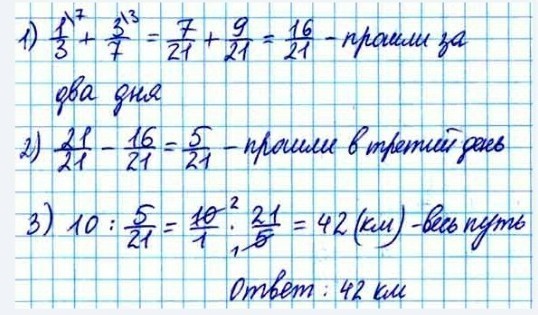 1) 1\7/3 + 3\3/7 = 7/21 + 9/21 = 16/21 - прошли за
два дня
2) 21/21 - 16/21 = 5/21 - прошли в третий день
3) 10 : 5/21 = 10 2/1 · 21/1 5 = 42 (км) - весь путь
Ответ : 42 км